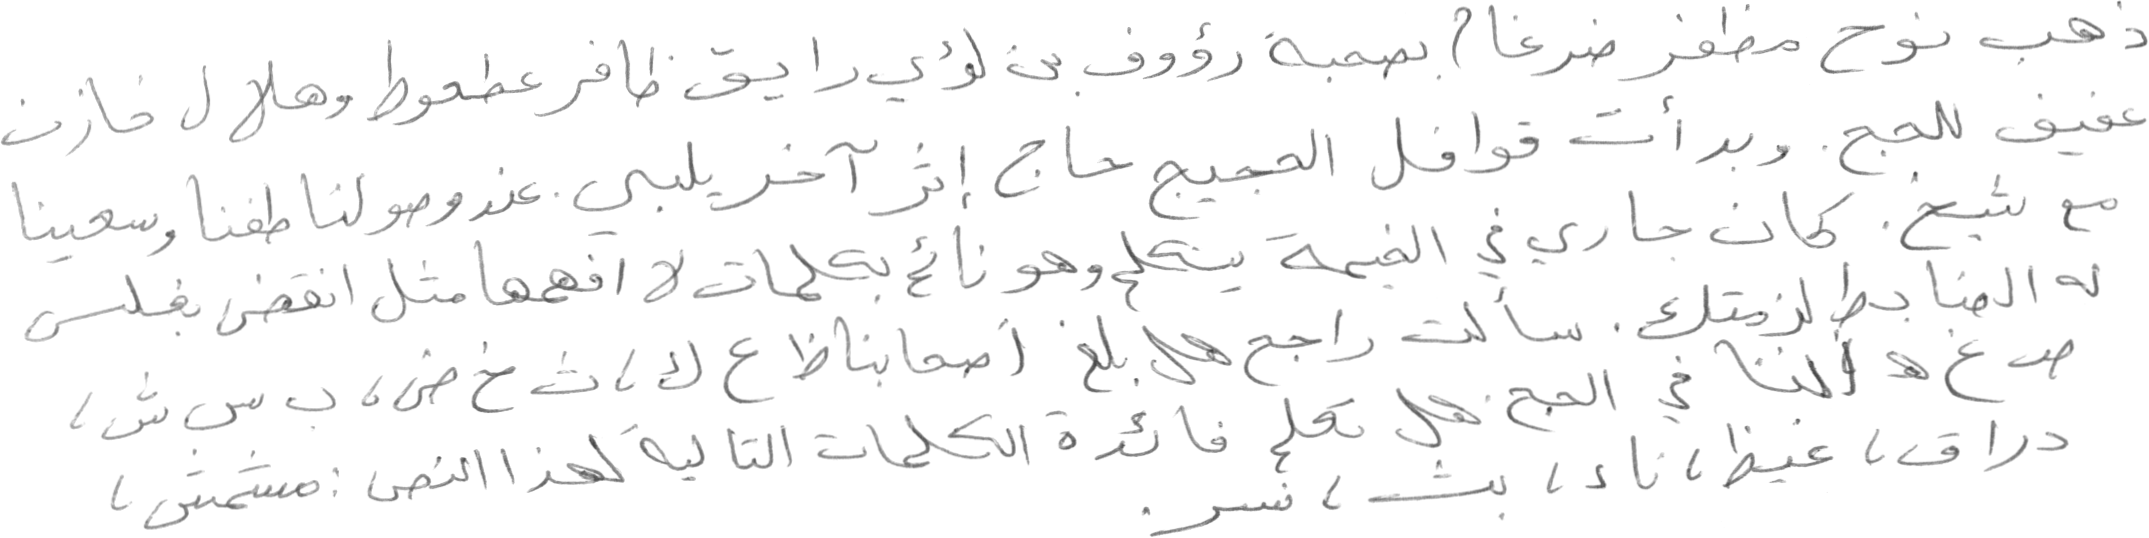 ذهب نوح مظفر ضرغام بصحبة رؤوف بن لؤي رايق ظافر عطعوط وهلال خازن
عفيف للحج. وبدأت قوافل الحجيج حاج إثر آخر يلبي. عند وصولنا طفنا وسعينا
مع شيخ. كان جاري في الخيمة يتكلم وهو نائم بكلمات لا افهمها مثل انقض بغلس
له الضابط لزمتك. سألت راجح هل بلغ أصحابنا ظ ع ك، ث خ ض، ب س ش،
ص غ ه أننا في الحج. هل تعلم فائدة الكلمات التالية لهذا النص: مشمش،
دراق، غيظ، ناء، بث، نسر.